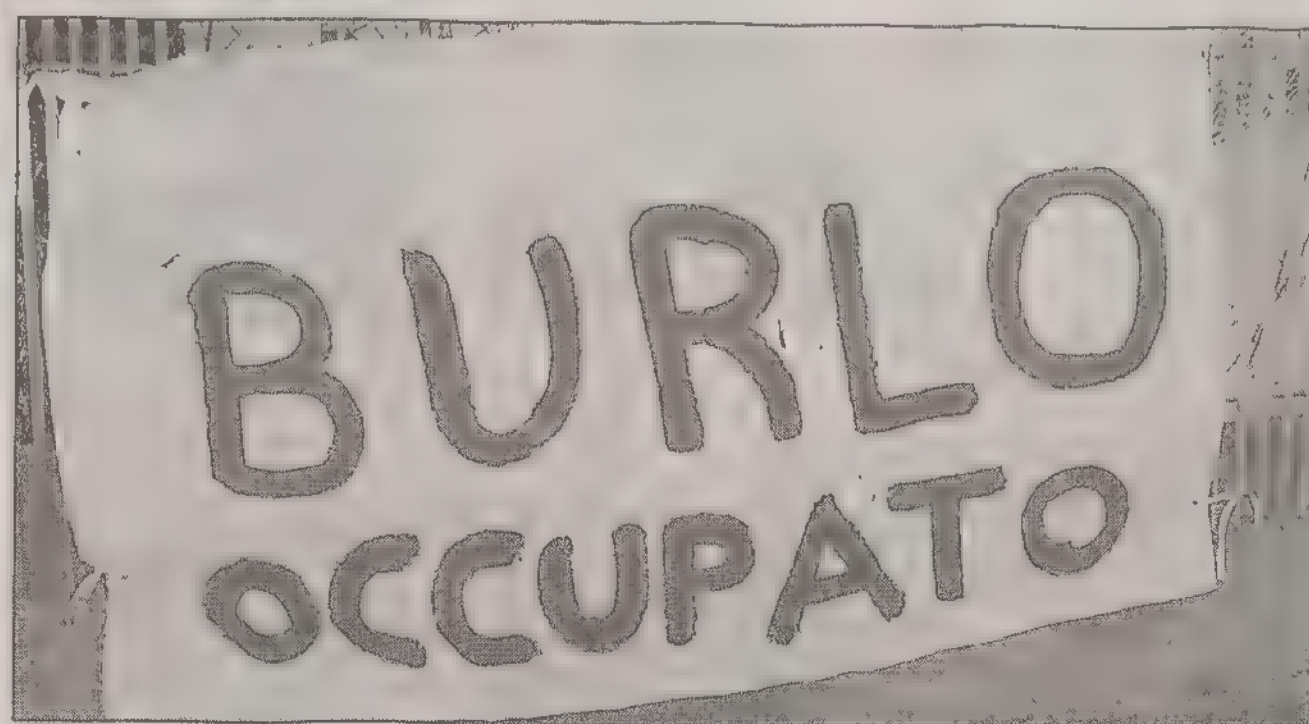 BURLO
OCCUPATO